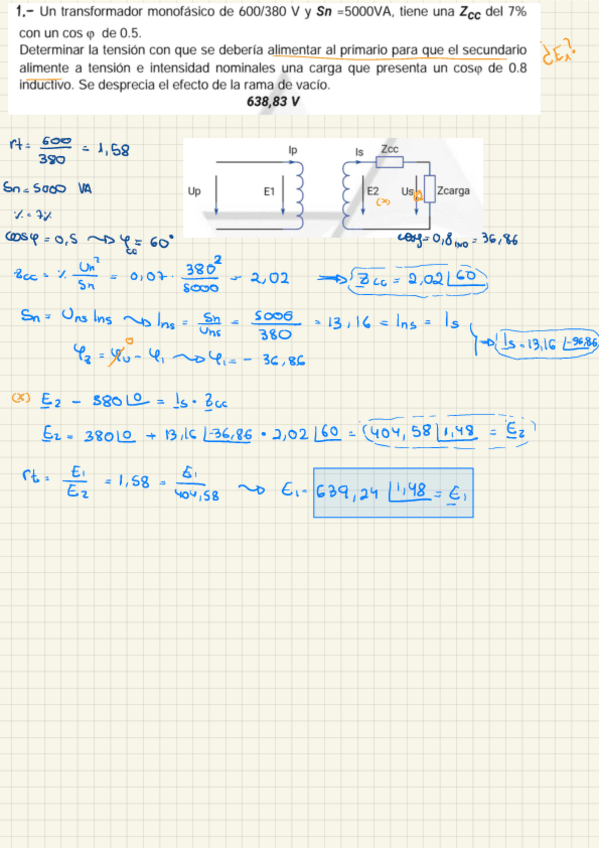 1.- Un transformador monofásico de 600/380 V y Sn =5000VA, tiene una Zcc del 7%
con un cos φ de 0.5.
Determinar la tensión con que se debería alimentar al primario para que el secundario
alimente a tensión e intensidad nominales una carga que presenta un cosφ de 0.8
inductivo. Se desprecia el efecto de la rama de vacío.
638,83 V
¿E₁?
rt = 600/380 = 1,58
Sn = 5000 VA
% = 7%
cosφ = 0,5 ⤳ φcc = 60°
Ip
Is
Zcc
Up
E1
E2
(*)
Us
Zcarga
cosφ = 0,8 IND = 36,86
Zcc = % Un²/Sn = 0,07 · 380²/5000 = 2,02 → Zcc = 2,02∠60
Sn = Uns Ins ⤳ Ins = Sn/Uns = 5000/380 = 13,16 = Ins = Is
φz = φu - φI ⤳ φI = - 36,86
0
Is = 13,16 ∠-36,86
(*) E2 - 380∠0 = Is · Zcc
E2 = 380∠0 + 13,16 ∠-36,86 · 2,02 ∠60 = 404,58 ∠1,48 = E2
rt = E1/E2 = 1,58 = E1/404,58 ⤳ E1 = 639,24 ∠1,48 = E1